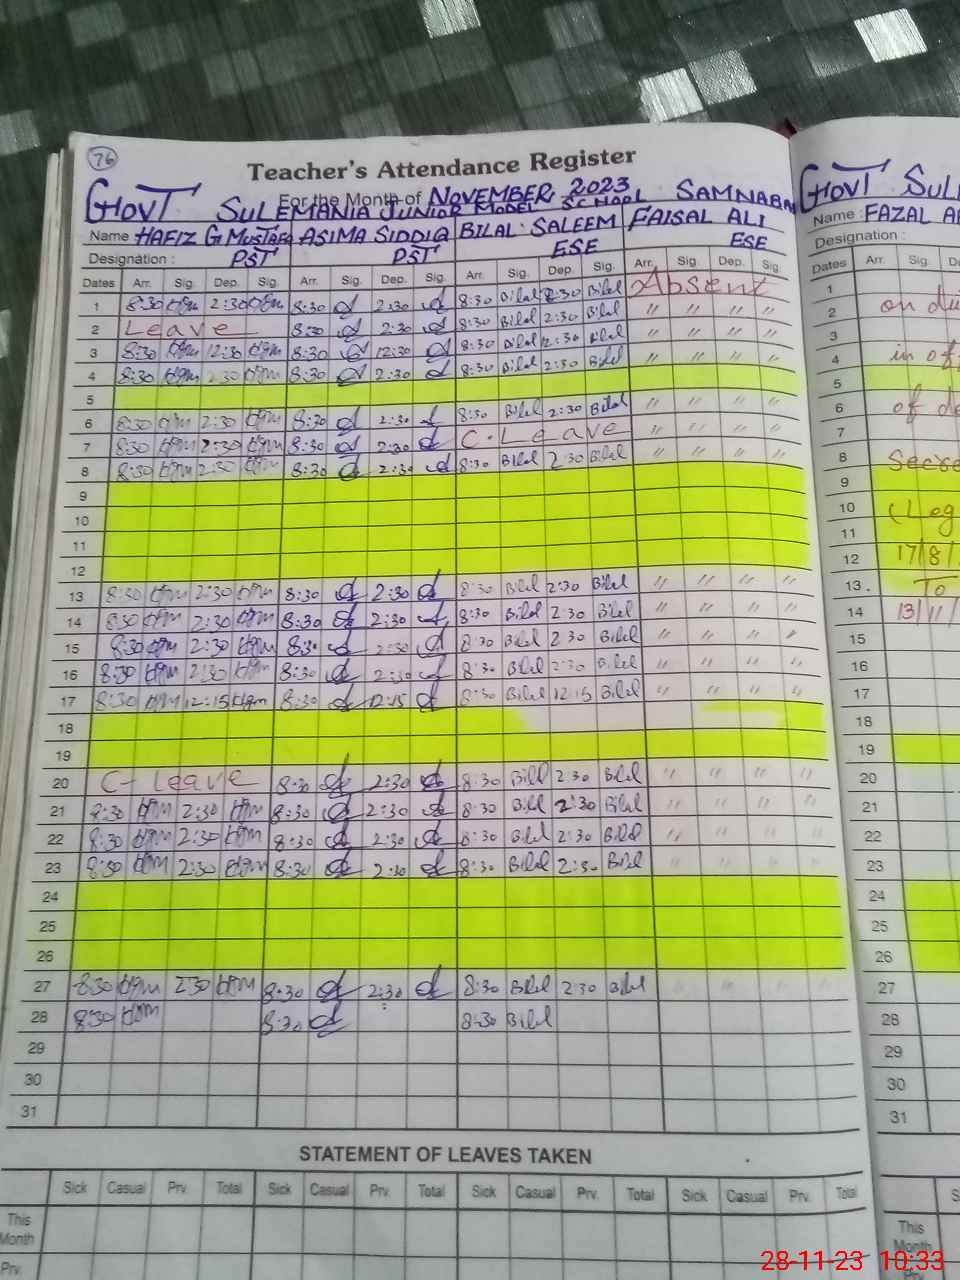 76
Teacher's Attendance Register
For the Month of NOVEMBER, 2023
GOVT SULEMANIA JUNIOR MODEL SCHOOL SAMNABAD
Name HAFIZ G MUSTAFA ASIMA SIDDIQ BILAL SALEEM FAISAL ALI
Designation : PST PST ESE ESE
Dates Arr. Sig. Dep. Sig. Arr. Sig. Dep. Sig. Arr. Sig. Dep. Sig. Arr. Sig. Dep. Sig.
1 8:30 2:30 8:30 2:30 8:30 Bilal 2:30 Bilal Absent
2 Leave 8:30 2:30 8:30 Bilal 2:30 Bilal " " " "
3 8:30 12:30 8:30 12:30 8:30 Bilal 12:30 Bilal " " " "
4 8:30 2:30 8:30 2:30 8:30 Bilal 2:30 Bilal " " " "
5
6 8:30 2:30 8:30 2:30 8:30 Bilal 2:30 Bilal " " " "
7 8:30 2:30 8:30 2:30 C. Leave " " " "
8 8:30 2:30 8:30 2:30 8:30 Bilal 2:30 Bilal " " " "
9
10
11
12
13 8:30 2:30 8:30 2:30 8:30 Bilal 2:30 Bilal " " " "
14 8:30 2:30 8:30 2:30 8:30 Bilal 2:30 Bilal " " " "
15 8:30 2:30 8:30 2:30 8:30 Bilal 2:30 Bilal " " " "
16 8:30 2:30 8:30 2:30 8:30 Bilal 2:30 Bilal " " " "
17 8:30 12:15 8:30 12:15 8:30 Bilal 12:15 Bilal " " " "
18
19
20 C- Leave 8:30 2:30 8:30 Bilal 2:30 Bilal " " " "
21 8:30 2:30 8:30 2:30 8:30 Bilal 2:30 Bilal " " " "
22 8:30 2:30 8:30 2:30 8:30 Bilal 2:30 Bilal " " " "
23 8:30 2:30 8:30 2:30 8:30 Bilal 2:30 Bilal " " " "
24
25
26
27 8:30 2:30 8:30 2:30 8:30 Bilal 2:30 Bilal
28 8:30 8:30 8:30 Bilal
29
30
31
STATEMENT OF LEAVES TAKEN
Sick Casual Prv. Total Sick Casual Prv. Total Sick Casual Prv. Total Sick Casual Prv. Total
This Month
Prv.
GOVT SUL
Name : FAZAL A
Designation :
Dates Arr. Sig. D
1
2 on du
3
4 in of
5
6 of de
7
8 Secre
9
10 (Leg
11
12 17/8/
13. To
14 13/11/
15
16
17
18
19
20
21
22
23
24
25
26
27
28
29
30
31
S
This Month
Prv
28-11-23 10:33